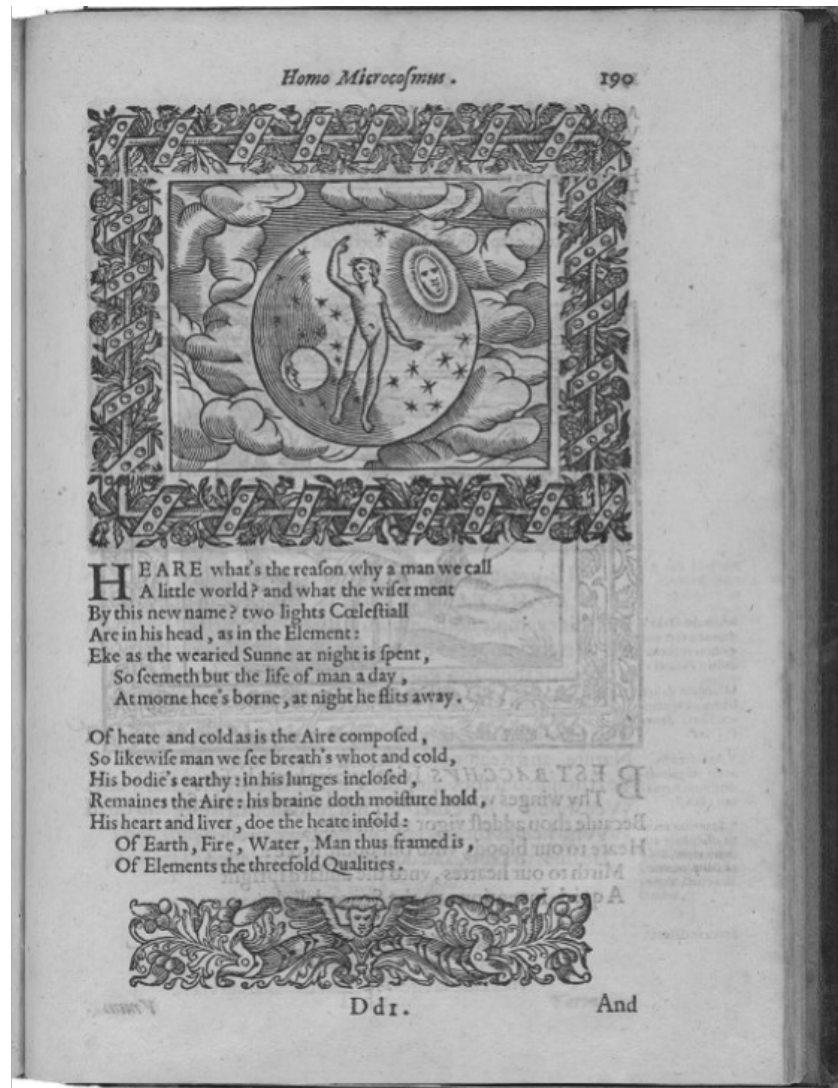 Homo Microcoſmus.
190
HEARE what's the reaſon why a man we call
A little world? and what the wiſer ment
By this new name? two lights Cœleſtiall
Are in his head, as in the Element:
Eke as the wearied Sunne at night is ſpent,
So ſeemeth but the life of man a day,
At morne hee's borne, at night he flits away.
Of heate and cold as is the Aire compoſed,
So likewiſe man we ſee breath's whot and cold,
His bodie's earthy: in his lunges incloſed,
Remaines the Aire: his braine doth moiſture hold,
His heart and liver, doe the heate infold:
Of Earth, Fire, Water, Man thus framed is,
Of Elements the threefold Qualities.
Dd1.
And